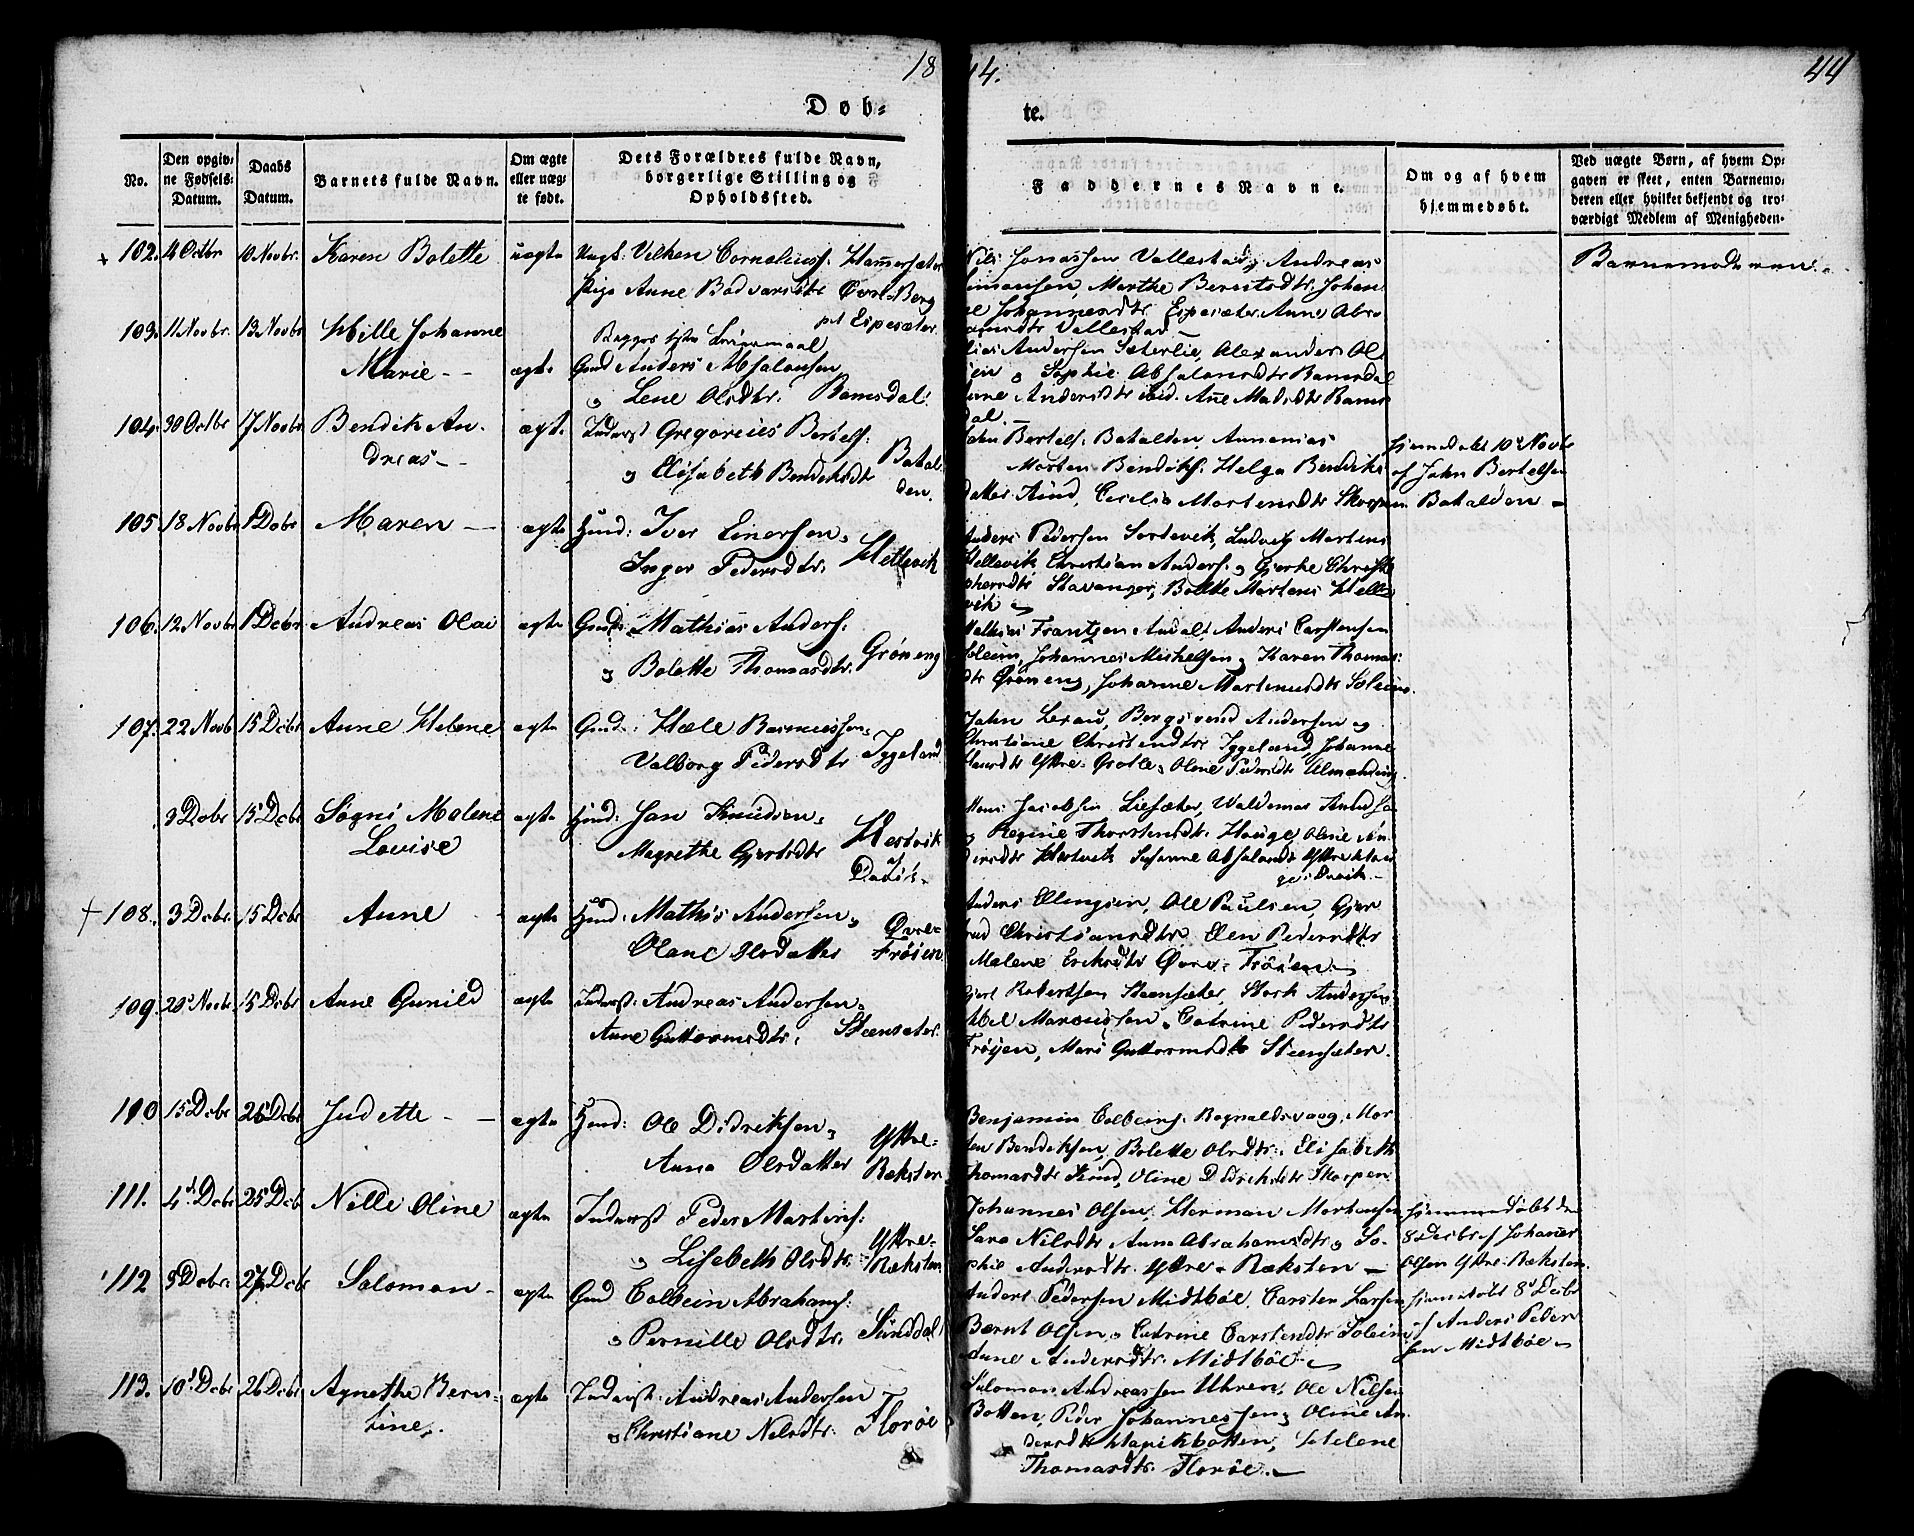 18 44.
44
Døb-
te.
No.
Den opgiv-
ne Fødsels-
Datum.
Daabs
Datum.
Barnets fulde Navn.
Om ægte
eller uæg-
te født.
Dets Forældres fulde Navn,
borgerlige Stilling og
Opholdssted.
Faddernes Navne.
Om og af hvem
hjemmedøbt.
Ved uægte Børn, af hvem Op-
gaven er skeet, enten Barnemo-
deren eller hvilket bekjendt og tro-
værdigt Medlem af Menigheden.
102. 4 Octbr 10 Novbr. Karen Bolette uægte Ungk: Vilken Corneliuss: Hammersæter
Pige Anne Bodvarsdtr Øvre-Berg
pt Espesæter.
Nils Jonassen Vallestad, Andreas
Simonsen, Marthe Berntsdtr, Johan
ne Johannesdtr. Espesæter. Anne Abra
hamsdtr Vallestad
Barnemoderen.
103. 11 Novbr. 13 Novbr Hille Johanne
Marie ægte Gmd Anders Absalonsen
og Lene Olsdtr. Ramsdal.
Andersen Sæterlie, Alexander Ol
sen og Sophie Absalonsdtr Ramsdal
Andersdtr ibid. Anne Madsdtr Rams
dal.
104. 30 Octbr 17 Novbr Bendik An-
dreas ægte Inderst Gregorius Bertels:
og Elisabeth Bendiksdt Batal-
den.
John Bertels: Batalden Annanias
Morten Bendiks: Helga Bendiks
datter Cecilia Mortensdtr Skorpen
hjemmedøbt 10d Novbr
af John Bertelsen
Batalden
105. 18 Novbr 1 Dcbr Maren ægte Huusmd: Iver Einersen og
Inger Pedersdtr. Hellevik
Anders Pedersen Sortevik, Ludvig Martens
Hellevik Christian Anders: og Gjerke Christo
phersdtr Stavanger, Bolette Martens Helle
vik
106. 12 Novbr 1 Dcbr Andreas Olai ægte Gmd: Mathias Anders:
og Bolette Thomasdtr. Grøneng
Mathias Frantzen Andal, Anders Carstensen
Soleim, Johannes Michelsen og Karen Thomas
dtr Grøneng, Johanne Martinusdtr Soleim.
107. 22 Novb 15 Dcbr Anne Helene ægte Gmd: Hæle Rasmussen
Valborg Pedersdtr Iggeland
John Lerau, Bergsvend Andersen og
Christiane Christensdtr Iggeland, Johanne
Ytre-Grotle og Oline Pedersdtr Ulmanding
3 Dcbr 15 Dcbr Søgni Malene
Lovise ægte Huusmd: Jan Knudsen og
Magrethe Gjertsdtr Hestvik
i Davik
Mons Jacobsen Liesæter, Waldemar Knudsen
Regine Thorstensdtr. Hauge, Oline An
dersdtr Hestvik Susanne Absalonsdtr Ytre
i Davik
108. 3 Dcbr 15 Dcbr Anne ægte Huusmd: Mathis Andersen og
Olane Olsdatter Øvre-
Frøien
Anders Ellingsen, Ole Paulsen, Gjer
trud Christiansdtr. Elen Pedersdtr
Malene Eriksdtr Øvre-Frøien
109. 20 Novbr 15 Dcbr Anne Gunild ægte Inderst: Andreas Andersen og
Anne Guttormsdtr. Steensæter.
Gjert Robertsen Steensæter, Stork Andersen
Abel Marcussen og Catrine Pedersdtr
Frøyen, Mari Guttormsdtr Steensæter.
110 15 Dcbr 26 Dcbr Judette ægte Huusmd: Ole Didriksen og
Anna Olsdatter Ytre-
Ræksten
Benjamin Colbeins: Rognaldsvaag, Mor
ten Bendiksen, Bolette Olsdtr. Elisabeth
Thomasdtr Oline Didriksdtr Skorpen
111. 4d Dcbr 25 Dcb Nille Oline ægte Inderst Peder Martins:
og Lisebeth Olsdtr. Ytre-
Ræksten
Johannes Olsen, Herman Mortensen
Sara Nilsdtr Anna Abrahamsdtr og So-
phie Andersdtr. Ytre-Ræksten
hjemmedøbt den
8 Decbr af Johannes
Olsen Ytre-Ræksten
112 3 Dcbr. 26 Dcb Salomon ægte Gmd Colbein Abrahams:
og Pernille Olsdtr. Sunddal
Anders Pedersen Midtbøe, Carsten Larsen
Bernt Olsen og Catrine Carstensdtr Soleim
Anne Andersdtr. Midtbøe
hjemmedøbt 8d Decbr
af Anders Peder
sen Midtbøe
113. 10d Dcbr 26 Dcbr Agnethe Bern-
tine. ægte Inderst: Andreas Andersen
og Christiane Nilsdtr. Florøe
Salomon Andreassen Uhren, Ole Nilsen
Botten, Peder Johannessen og Oline An-
dersdtr Havikbotten, Helene
Thomasdtr. Florøe.